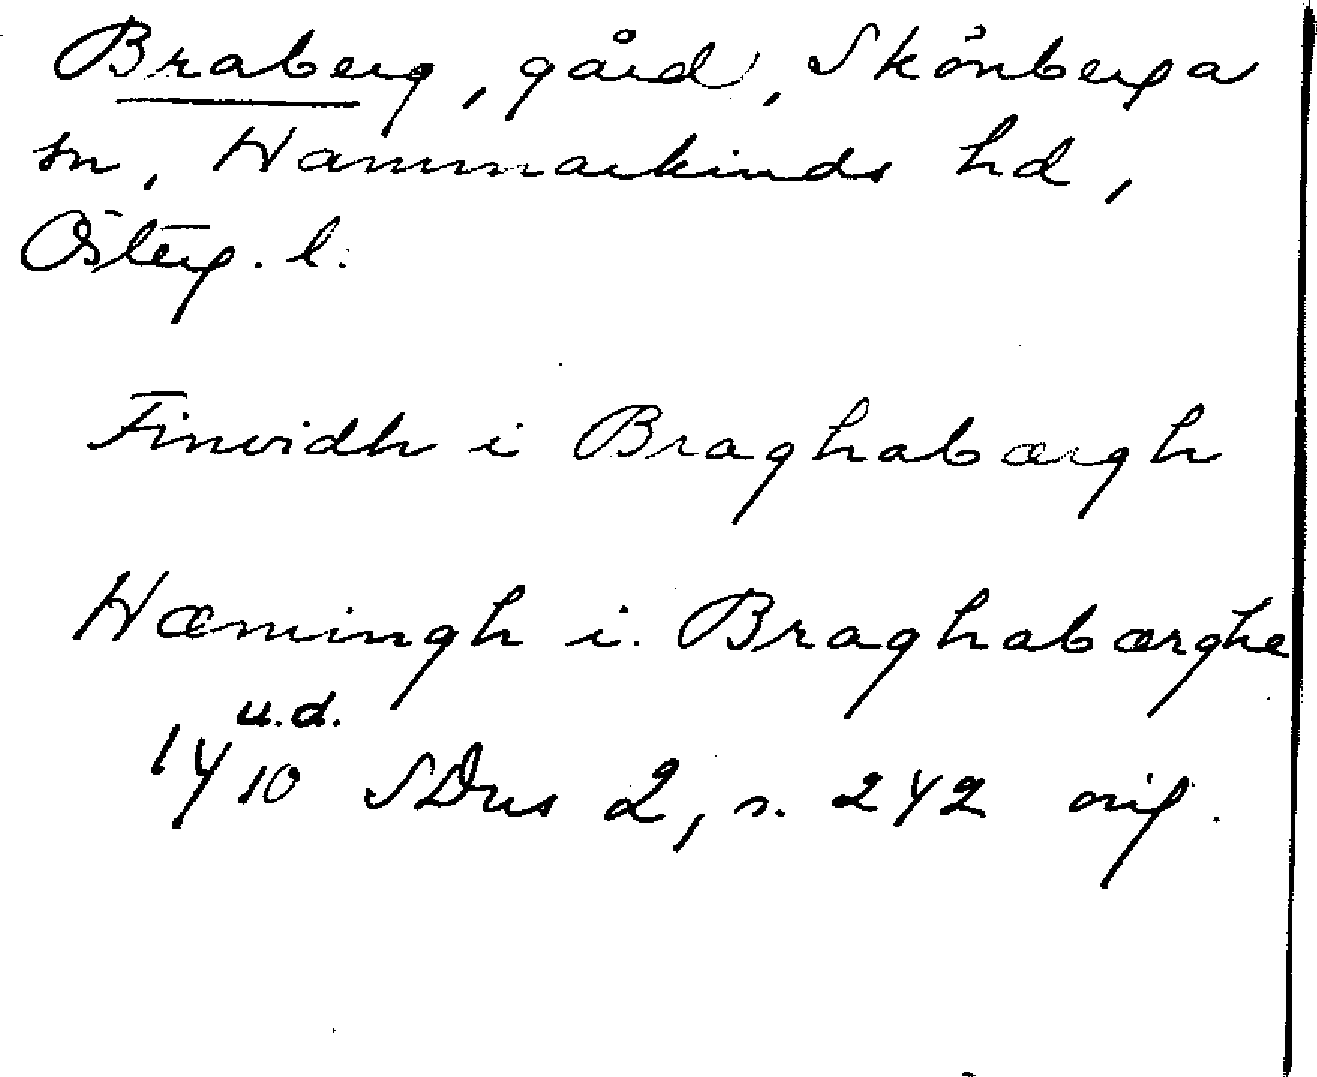 Braberg, gård, Skönberga
sn, Hammarkinds hd,
Österg. l.
Finvidh i Braghabærgh
Hæmingh i Braghabærghe
u.d.
1410 SDns 2, s. 242 orig.